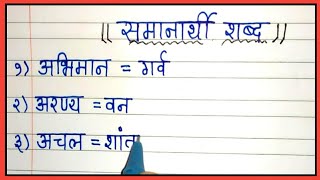 || समानार्थी शब्द ||
१) अभिमान = गर्व
२) अरण्य = वन
३) अचल = शांत